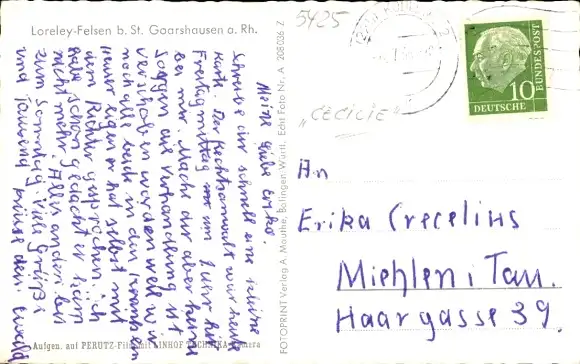 Loreley-Felsen b. St. Goarshausen a. Rh.
5425
Meine liebe Erika.
Schreibe dir schnell eine kleine
Karte. Der Rechtsanwalt war heute
Freitag mittag um 2 Uhr hier
bei mir. Mache dir aber keine
Sorgen die Verhandlung ist
verschoben werden weil wir
noch alle beide in den
er hat selbst mit
dem Richter gesprochen. ich
habe schon gedacht er käm
nicht mehr. Alles andere bei
zum Sonntag. Viele Grüße
und tausend Küsse dein Ewald
Aufgen. auf PERUTZ-Film mit LINHOF TECHNIKA Kamera
FOTOPRINT Verlag A. Mauthe, Balingen-Württ. Echt Foto Nr. A 208026 Z
10
DEUTSCHE
BUNDESPOST
"CECILIE"
An
Erika Crecelius
Miehlen i Tau.
Haargasse 39.